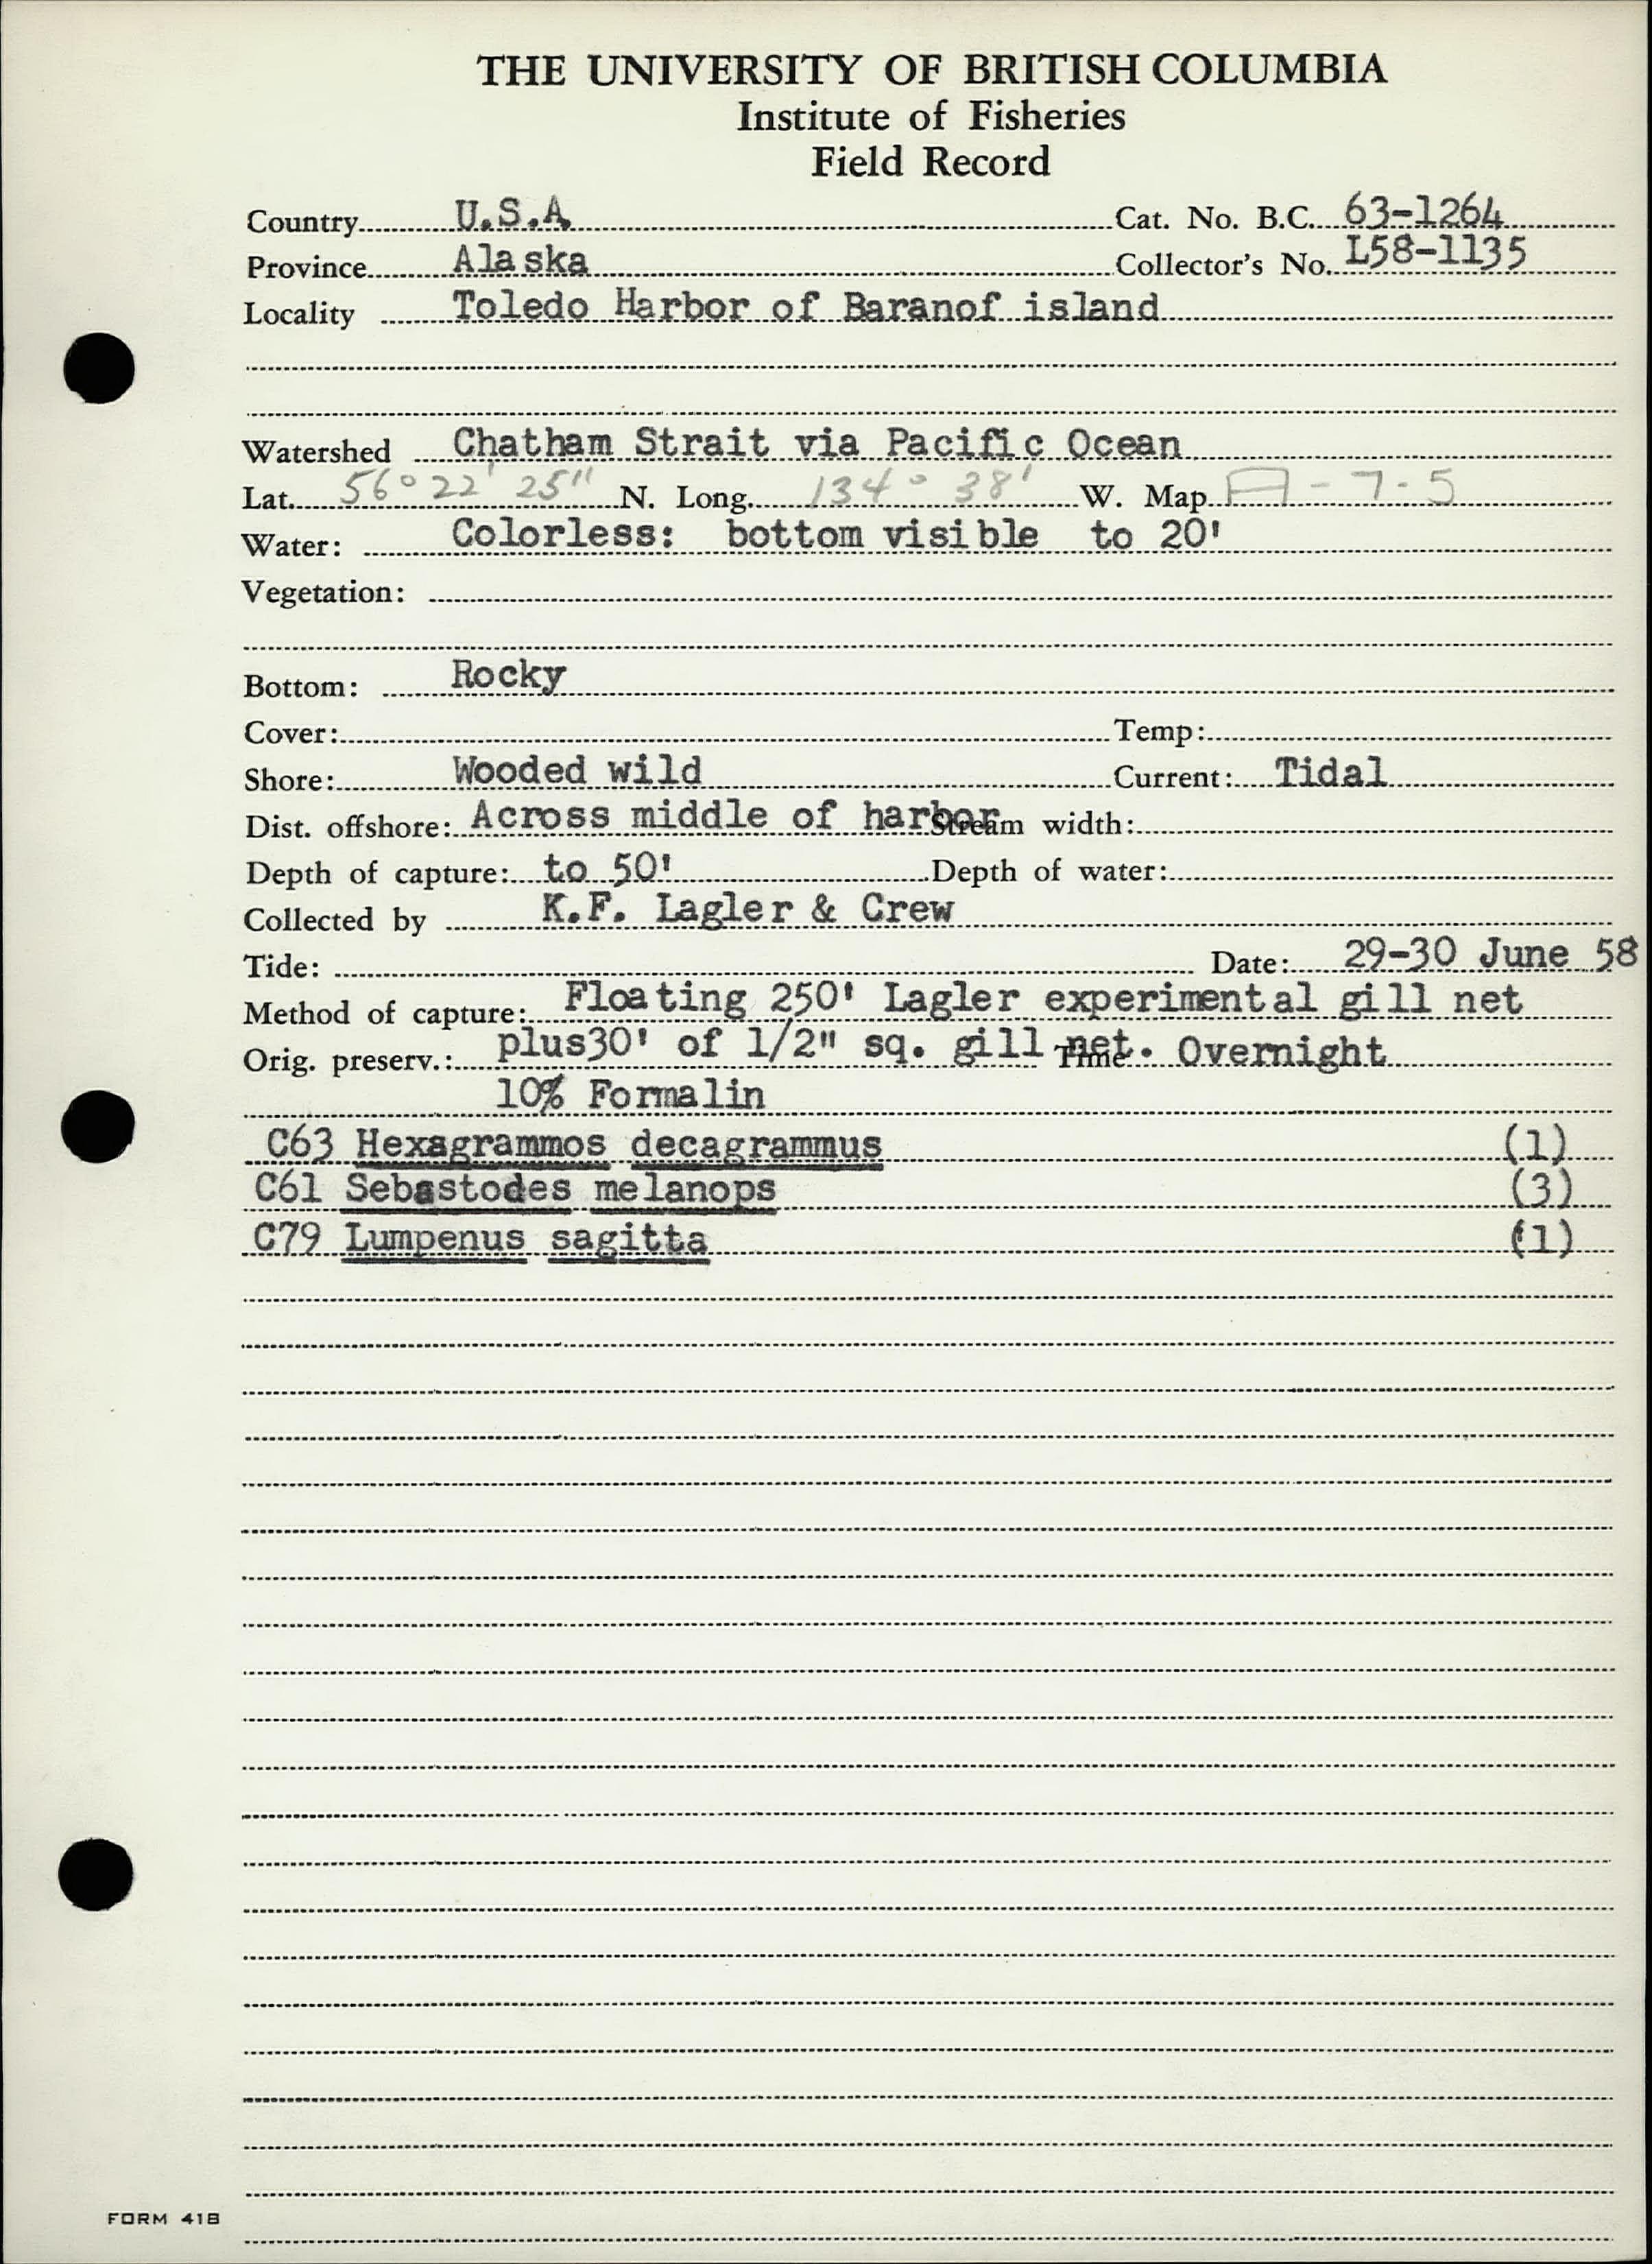 THE UNIVERSITY OF BRITISH COLUMBIA
Institute of Fisheries
Field Record
Country U.S.A. Cat. No. B.C. 63-1264
Province Alaska Collector's No. L58-1135
Locality Toledo Harbor of Baranof island
Watershed Chatham Strait via Pacific Ocean
Lat. 56° 22' 25" N. Long. 134° 38' W. Map A-7-5
Water: Colorless: bottom visible to 20'
Vegetation:
Bottom: Rocky
Cover: Temp:
Shore: Wooded wild Current: Tidal
Dist. offshore: Across middle of harbor Stream width:
Depth of capture: to 50' Depth of water:
Collected by K.F. Lagler & Crew
Tide: Date: 29-30 June 58
Method of capture: Floating 250' Lagler experimental gill net
Orig. preserv.: plus30' of 1/2" sq. gill net. Time Overnight
10% Formalin
C63 Hexagrammos decagrammus (1)
C61 Sebastodes melanops (3)
C79 Lumpenus sagitta (1)
FORM 41B